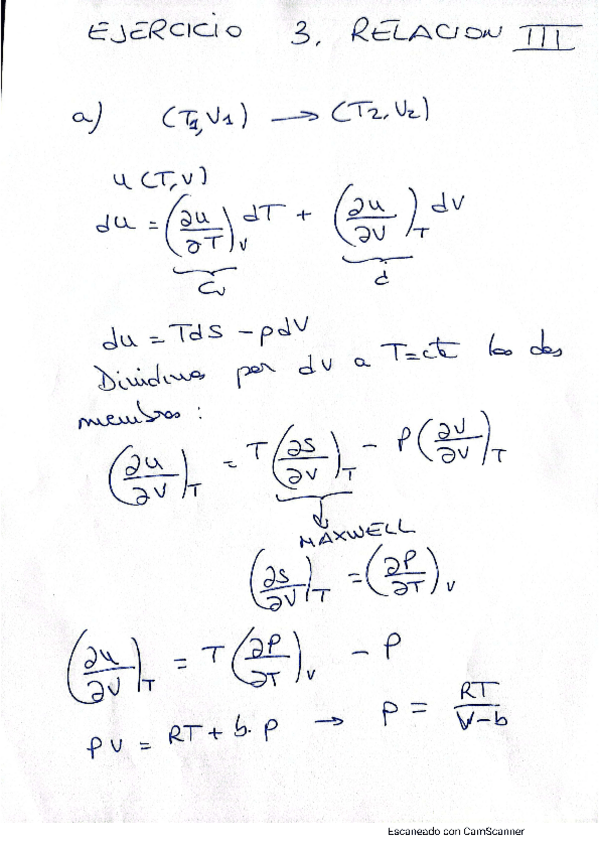 EJERCICIO 3. RELACION III
a) (T1,V1) → (T2,V2)
u(T,V)
du = (∂u/∂T)V dT + (∂u/∂V)T dV
Cv ¿
du = TdS - pdV
Dividimos por dV a T=cte los dos
miembros :
(∂u/∂V)T = T(∂S/∂V)T - P(∂V/∂V)T
MAXWELL
(∂S/∂V)T = (∂P/∂T)V
(∂u/∂V)T = T(∂P/∂T)V - P
PV = RT + b·P → P = RT/V-b
Escaneado con CamScanner